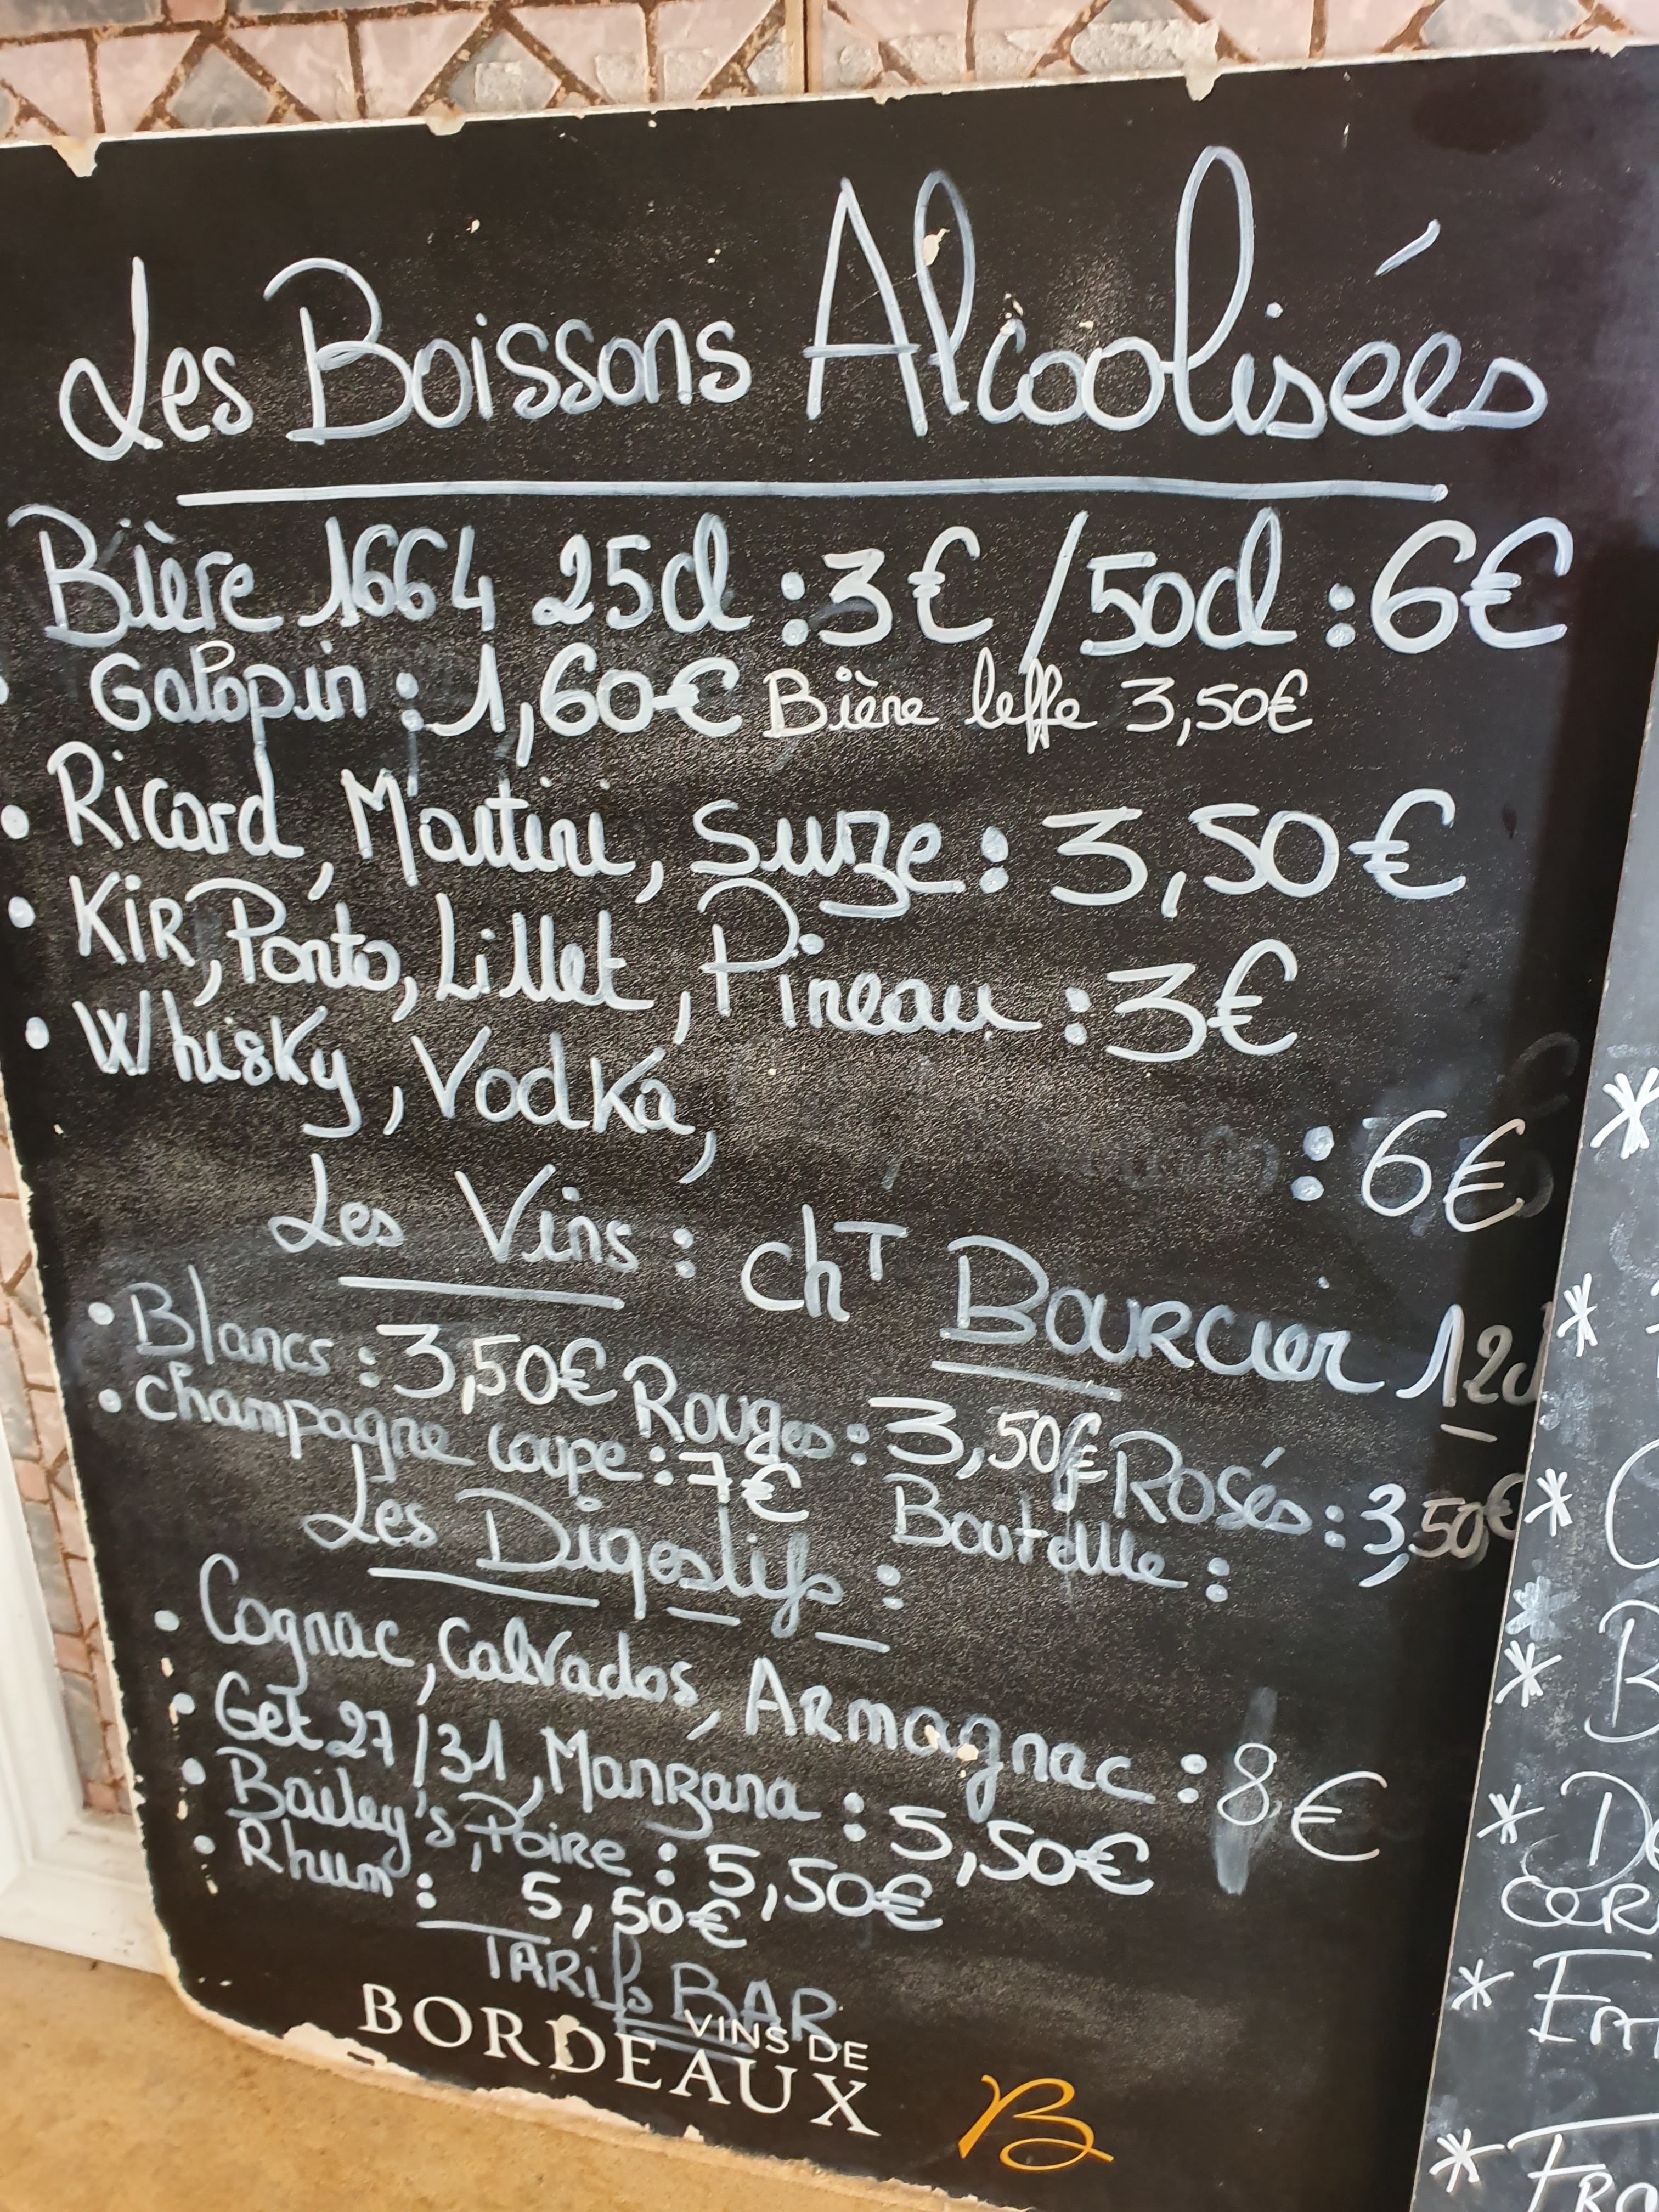 Les Boissons Alcoolisées
Bière 1664 25cl : 3€ / 50cl : 6€
Galopin : 1,60€ Bière leffe 3,50€
• Ricard, Martini, Suze : 3,50€
• Kir, Porto, Lillet, Pineau : 3€
• Whisky, Vodka, : 6€
Les Vins : chT Bourcier 12cl
• Blancs : 3,50€ Rouges : 3,50€ Rosés : 3,50€
• Champagne coupe : 7€ Bouteille :
Les Digestifs :
• Cognac, Calvados, Armagnac : 8€
• Get 27/31, Manzana : 5,50€
• Bailey's, Poire : 5,50€
• Rhum : 5,50€
TARifs BAR
VINS DE
BORDEAUX
B